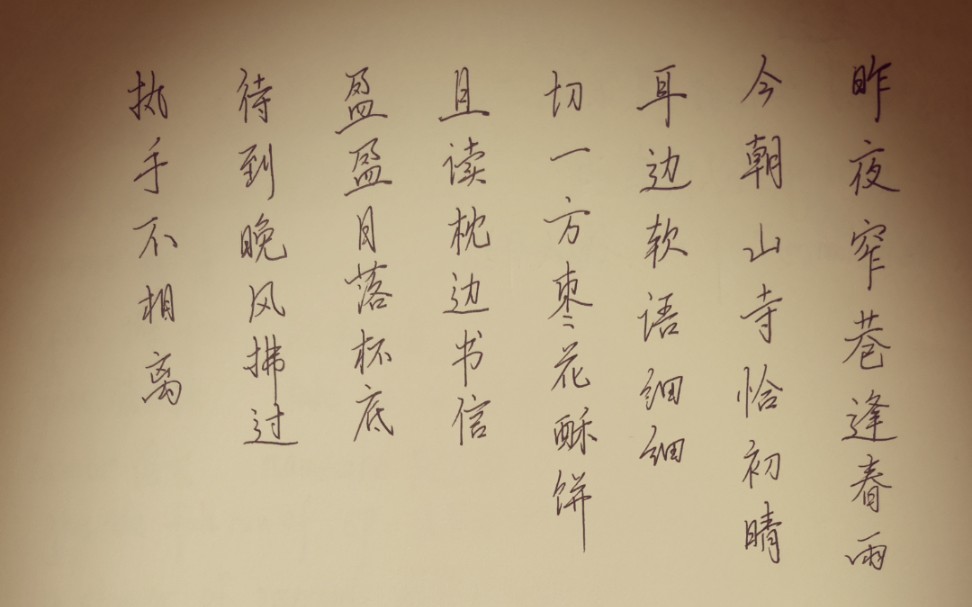 昨夜窄巷逢春雨
今朝山寺恰初晴
耳边软语细细
切一方枣花酥饼
且读枕边书信
盈盈月落杯底
待到晚风拂过
执手不相离